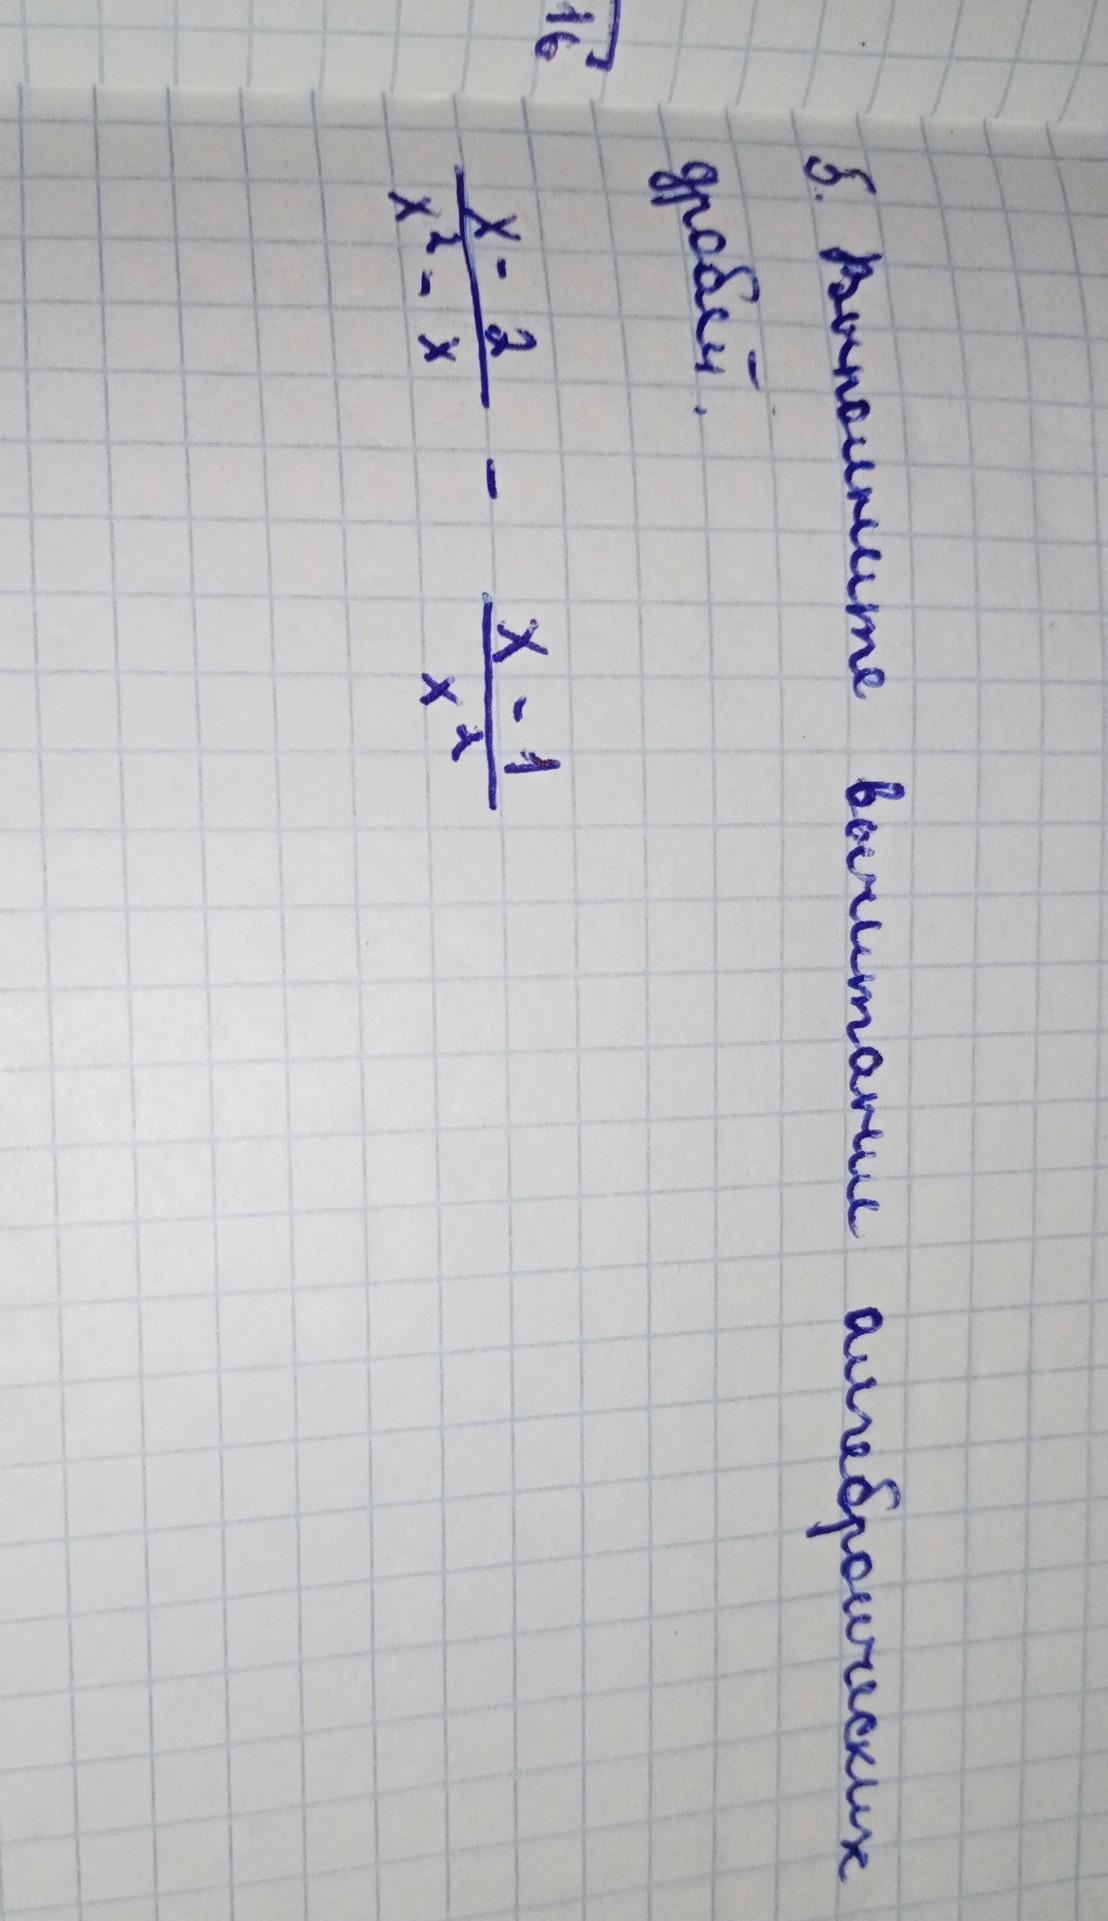 16
5. Выполните вычитание алгебраических
дробей.
x - 2 / x² - x - x - 1 / x²